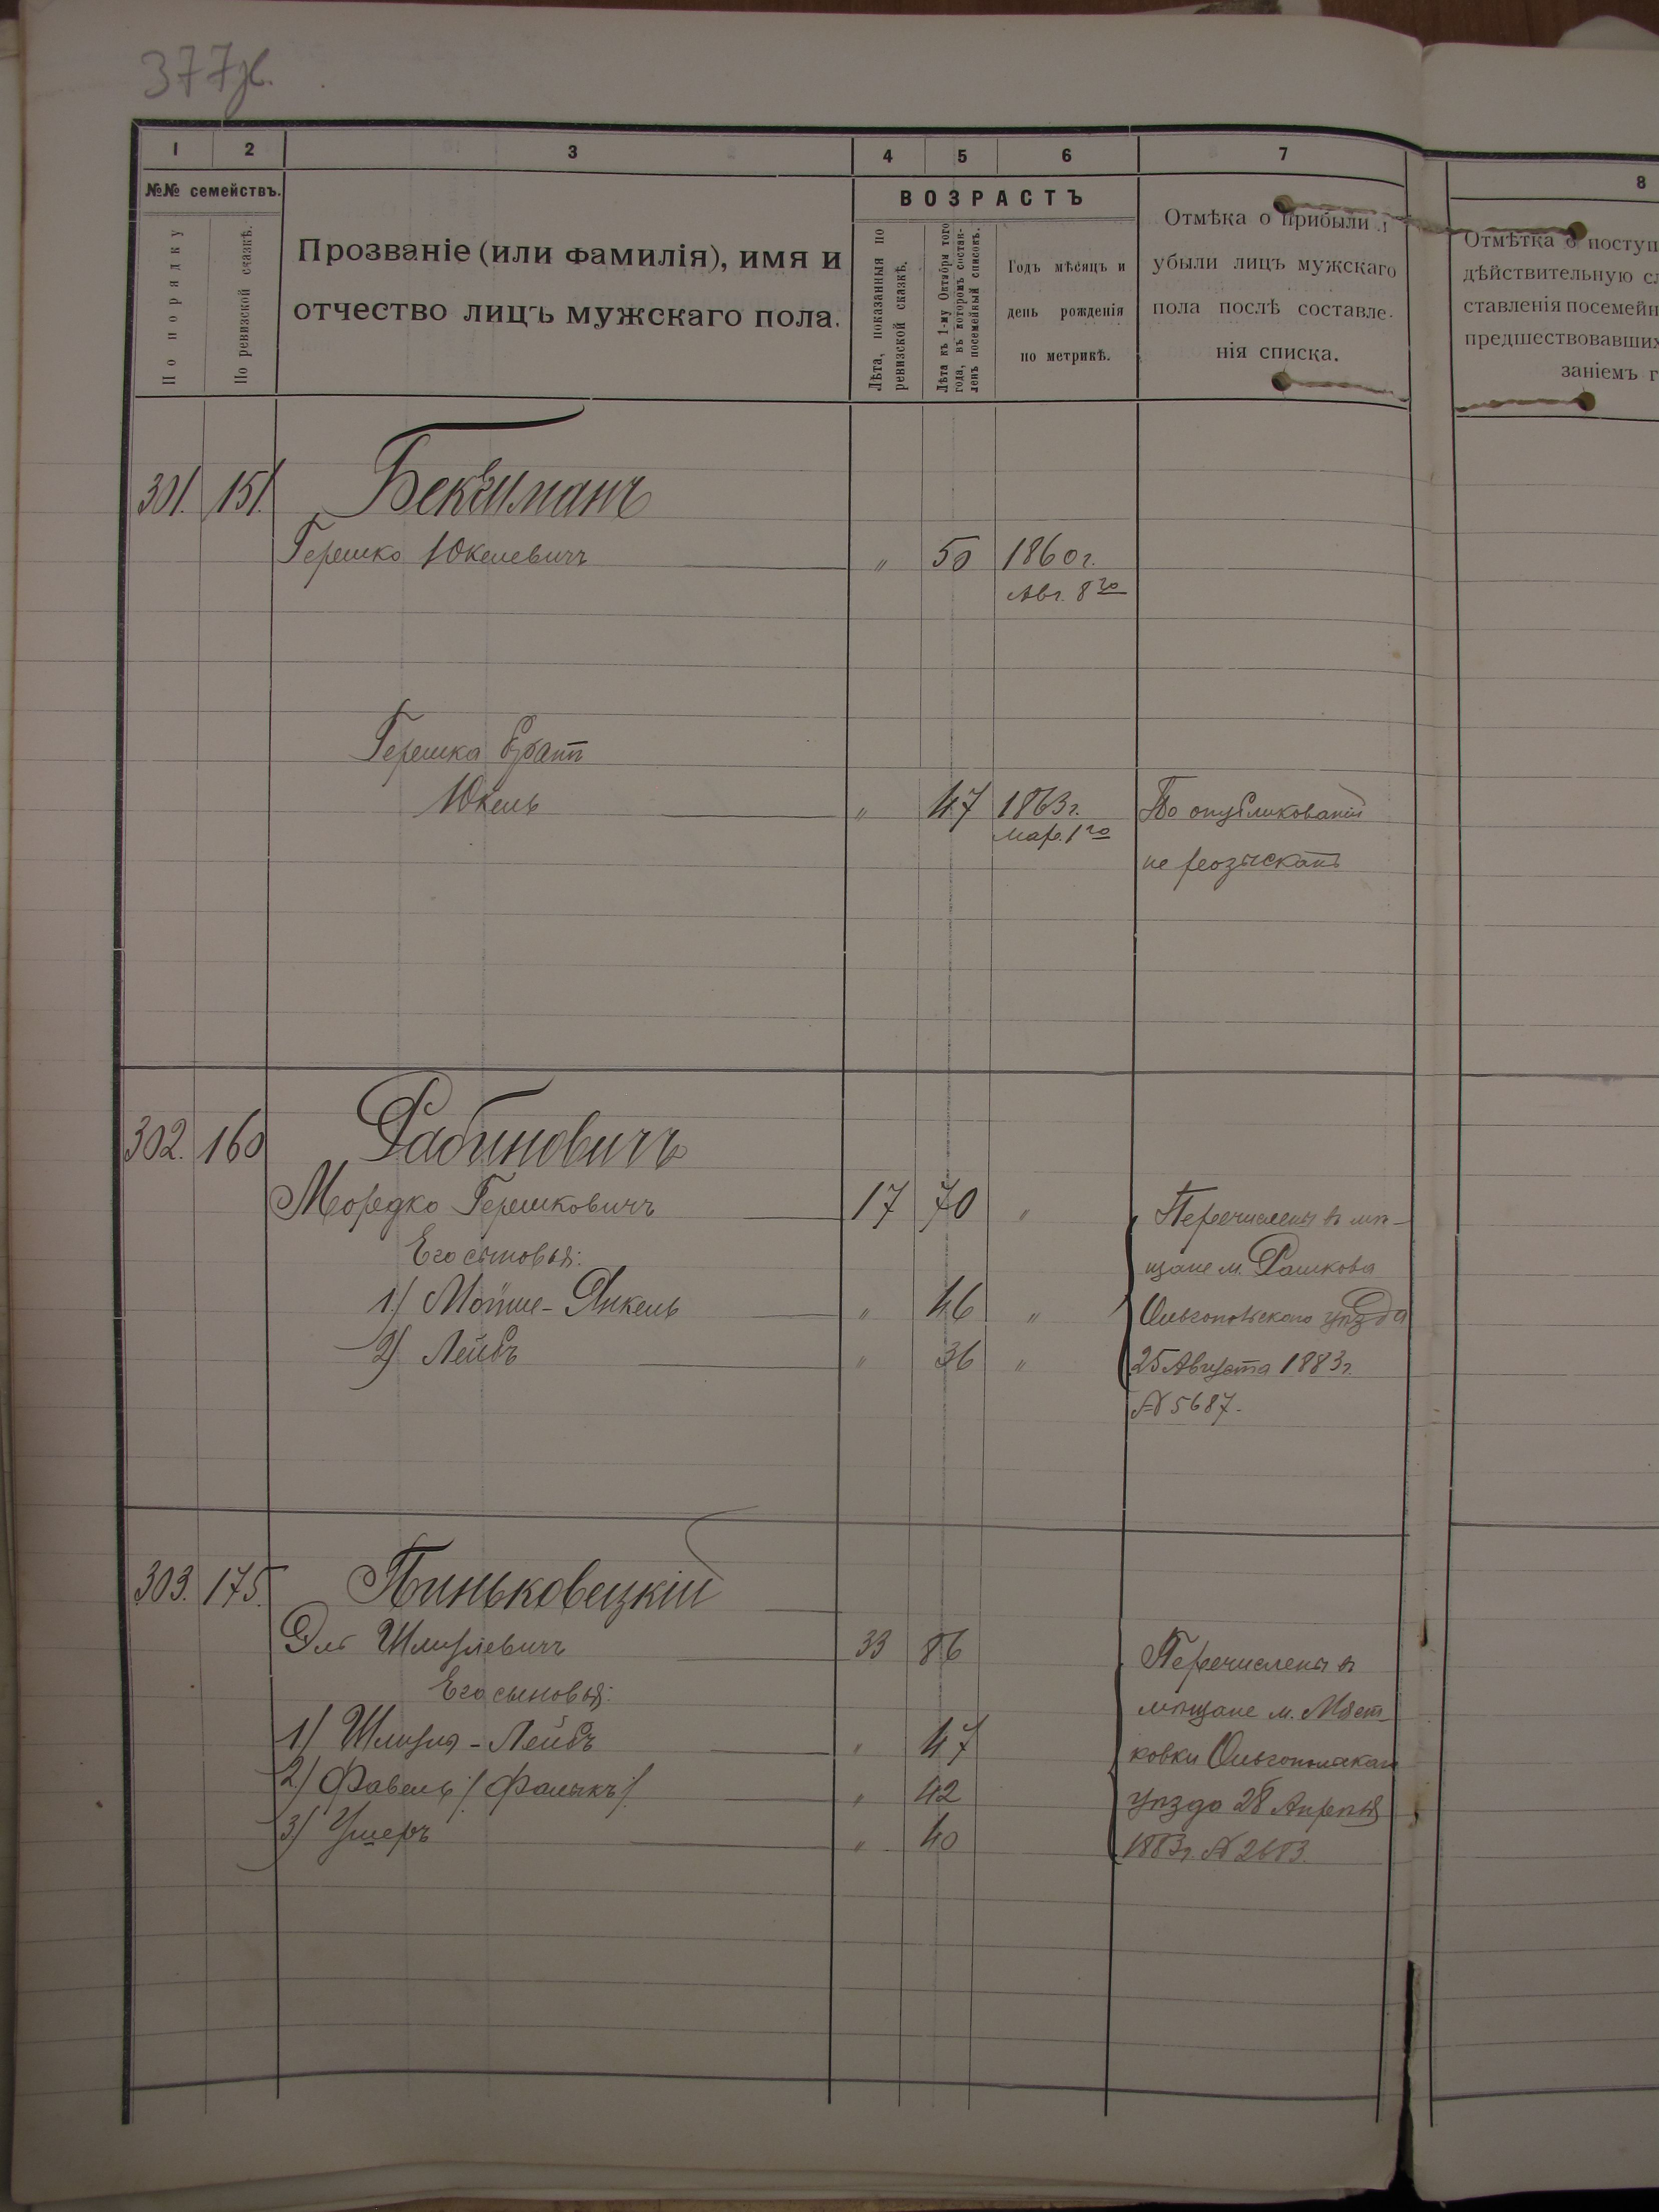 377
1 2 3 4 5 6 7
8
№№ семействъ.
По порядку
По ревизской сказкѣ.
Прозваніе (или фамилія), имя и
отчество лицъ мужскаго пола.
ВОЗРАСТЪ
Лѣта, показанныя по
ревизской сказкѣ.
Лѣта къ 1-му Октября того
года, въ которомъ состав-
ленъ посемейный списокъ.
Годъ мѣсяцъ и
день рожденія
по метрикѣ.
Отмѣка о прибыли и
убыли лицъ мужскаго
пола послѣ составле-
нія списка.
Отмѣтка о поступ
дѣйствительную сл
ставленія посемейн
предшествовавших
заніемъ г
301. 151.
Герешко Юкелевичъ " 50 1860 г.
Авг. 8го
Герешка братъ
Юкель " 47 1863 г. По опубликованіи
мар. 1го
не розысканъ
302. 160 Рабиновичъ
Мордко Герешковичъ 17 70 " Перечислены въ мѣ-
Его сыновья: щане м. Рашкова
1) Мойше-Янкель " 46 " Ольгопольскаго уѣзда
2) Лейбъ " 36 " 25 Августа 1883 г.
№ 5687.
303. 175. Пиньковецкій
Эль Шмулевичъ 33 86 Перечислены въ
Его сыновья: мѣщане м. Мяст-
1) Шмуля-Лейбъ " 47 ковки Ольгопольскаго
2) Фавель /Фалыкъ/ " 42 уѣзда 28 Апрѣля
3) Ушеръ " 40 1883 г. № 2683.